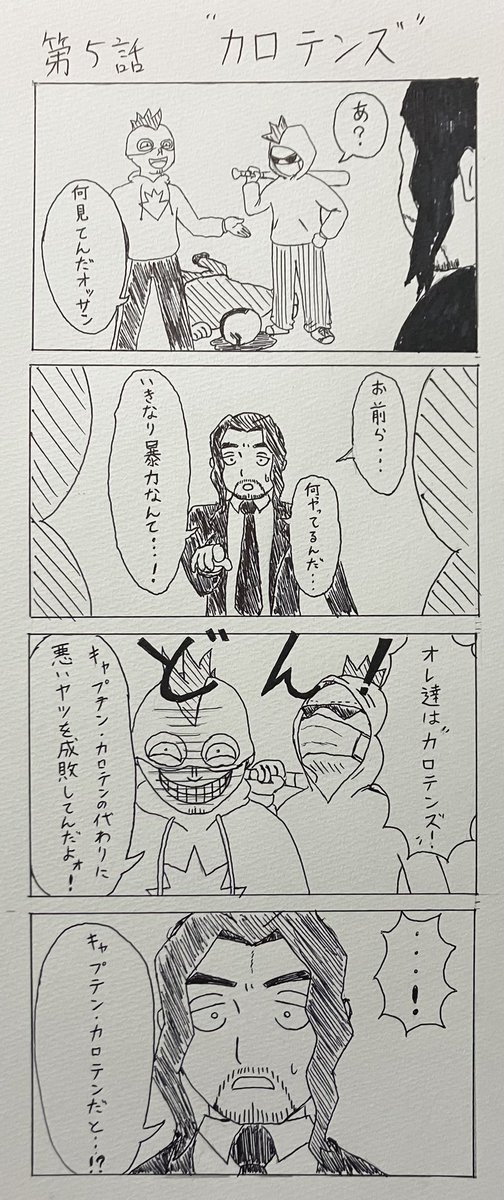 第5話 "カロテンズ"
あ?
何見てんだオッサン
お前ら・・・
何やってるんだ・・・
いきなり暴力なんて・・・!
どん!
オレ達は"カロテンズ"!
キャプテン・カロテンの代わりに
悪いヤツを、成敗してんだよォ!
・・・・!
キャプテン・カロテンだと・・・!?